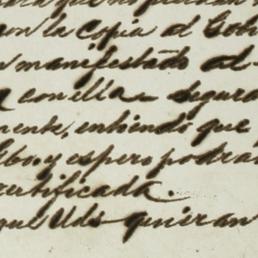 que no puedan
con la Copia al Gob
manifestado al
con ella segura
mente, entiendo que
y espero podran
certificada.
que Uds quieran